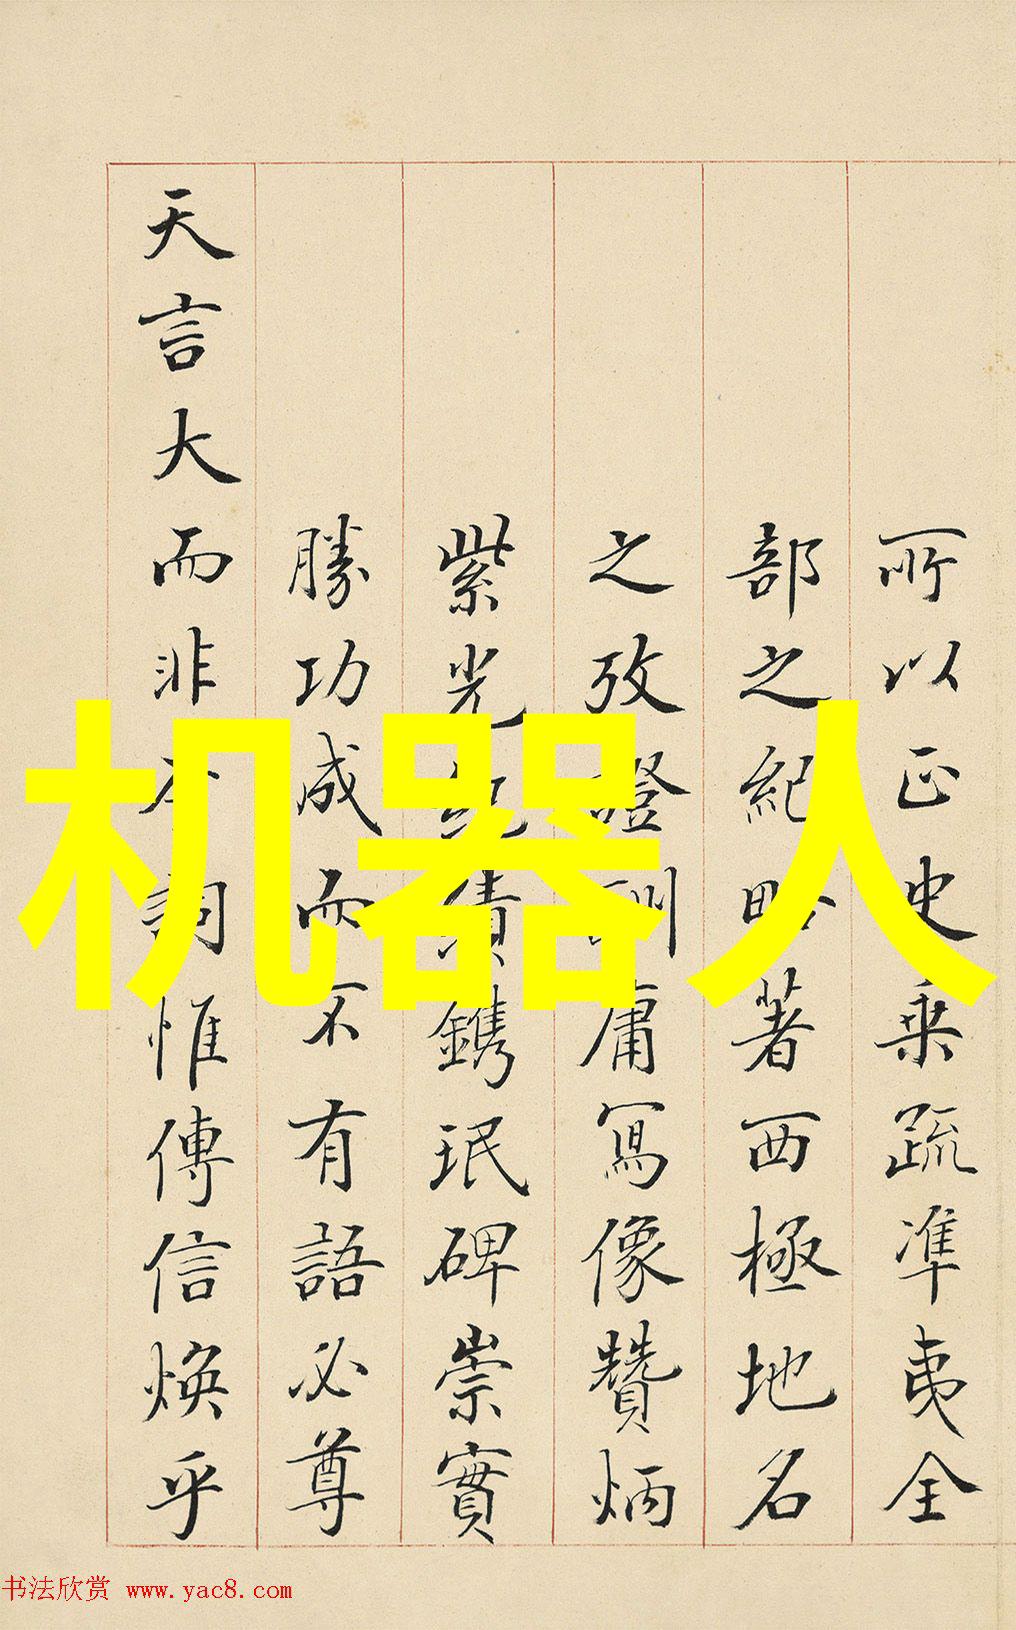 所以正史乘疏準夷全
部之紀略著西極地名
之攷證酬庸寫像贊炳
紫光紀績鐫珉碑崇實
勝功成而不有語必尊
天言大而非詞惟傳信煥乎
机器人
书法欣赏 www.yac8.com